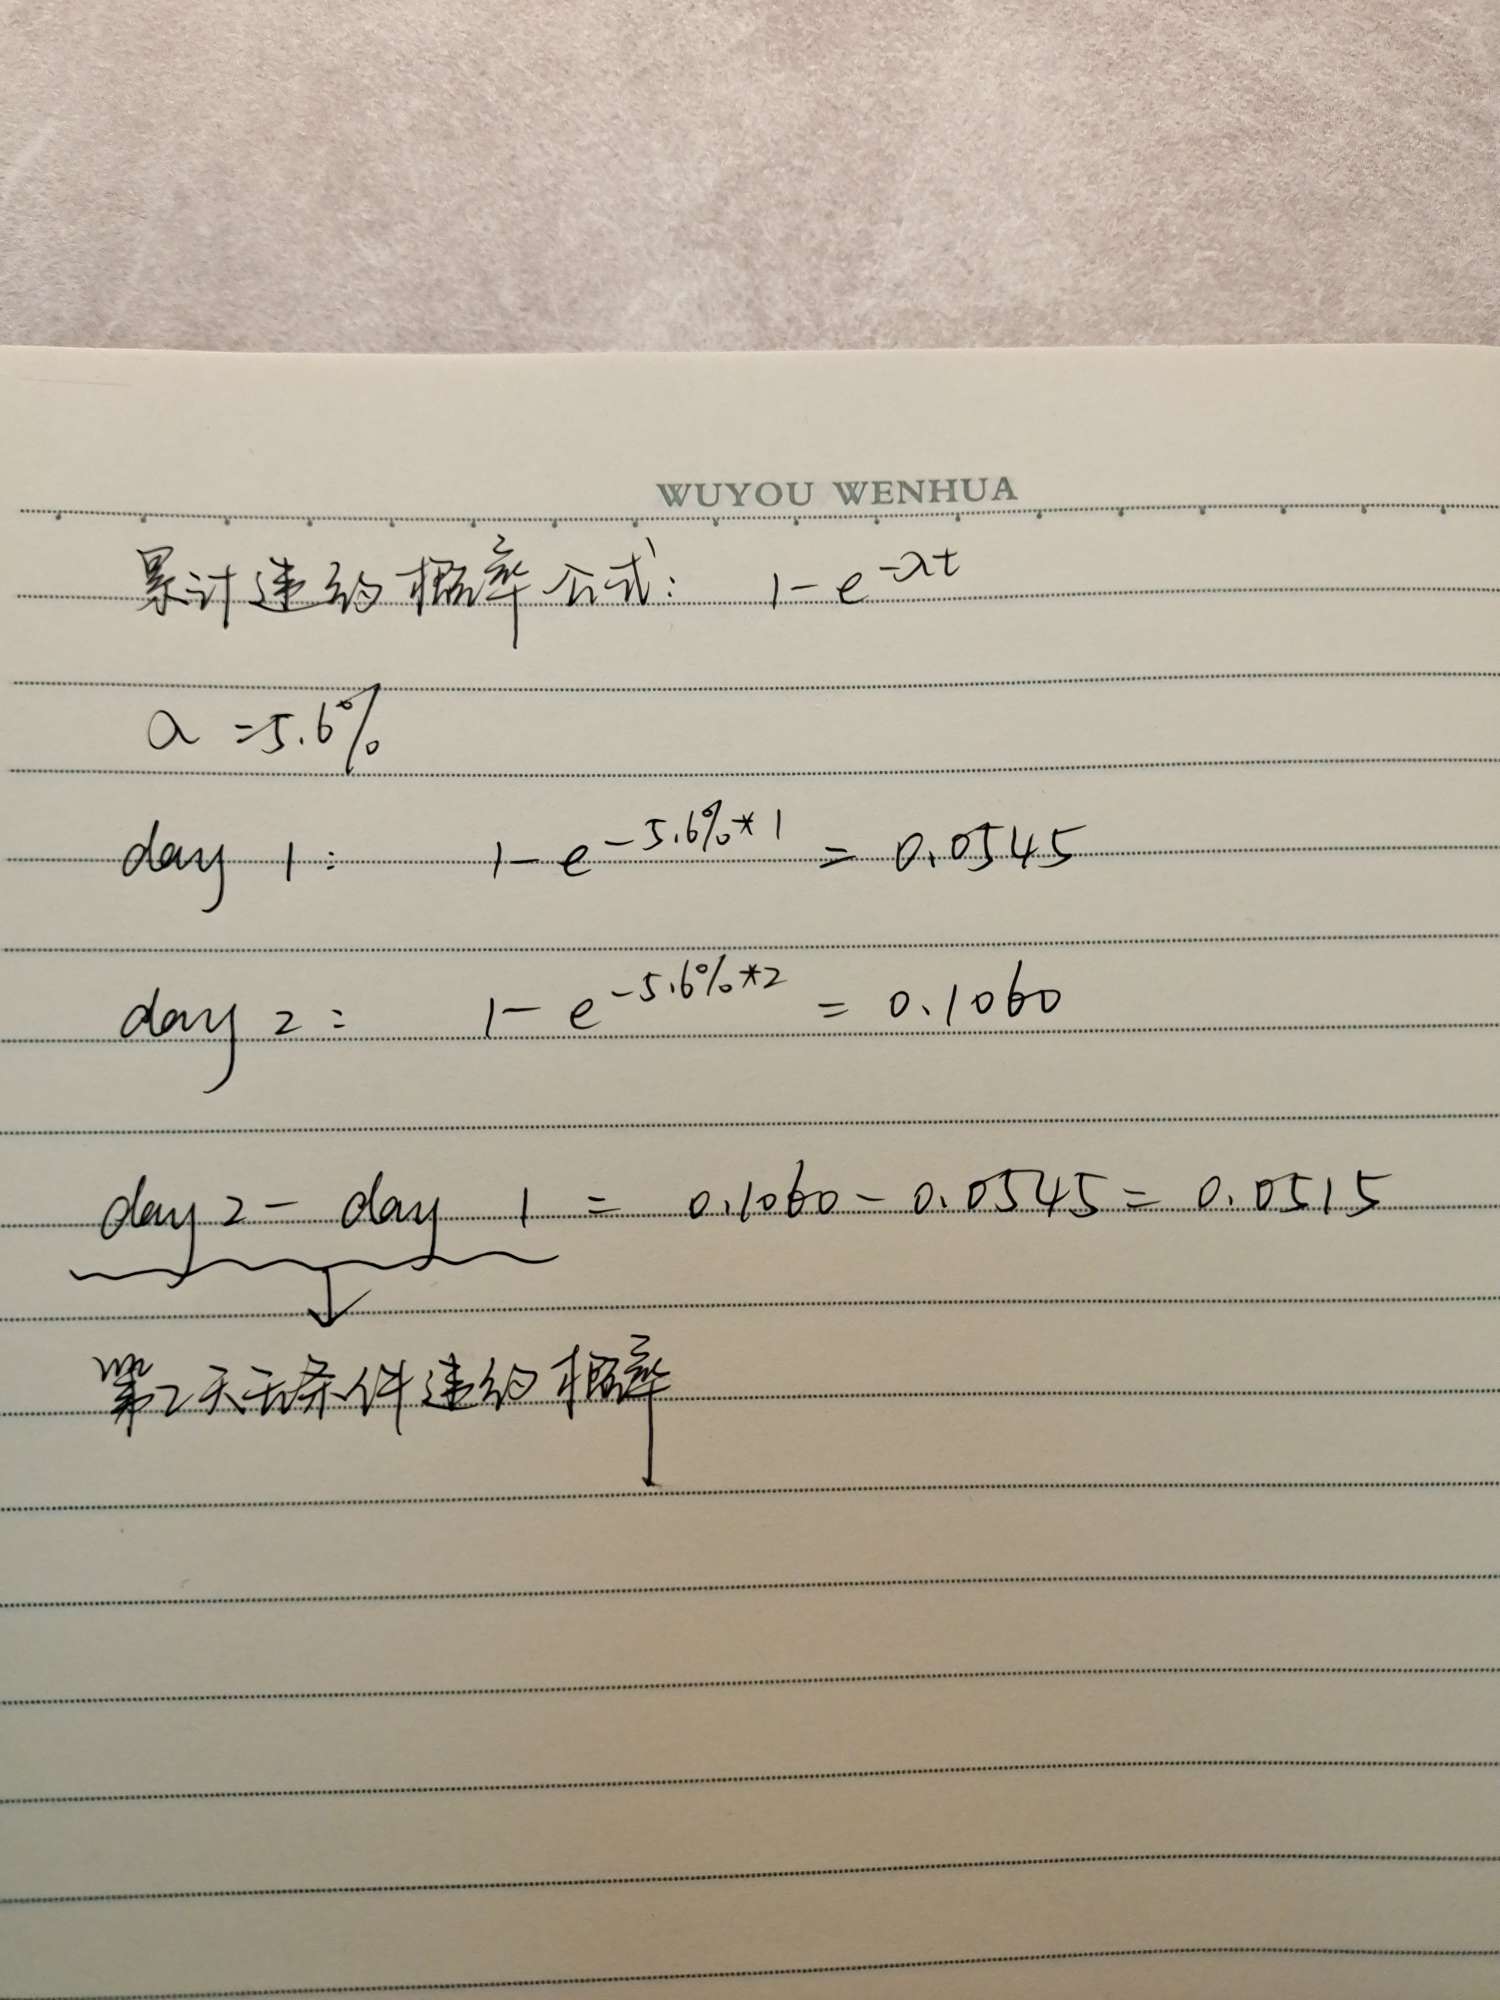 WUYOU WENHUA
累计违约概率公式: 1-e^-λt
λ=5.6%
day 1: 1-e^-5.6%*1 = 0.0545
day 2: 1-e^-5.6%*2 = 0.1060
day 2 - day 1 = 0.1060-0.0545=0.0515
第2天无条件违约概率